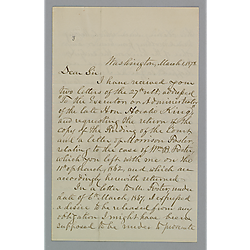 Washington, March 1878.
Dear Sir:
I have received your
two letters of the 27th ult. addressed
"To the Executor or Administrator
of the late Hon. Horatio King"
and requesting the return of the
copy of the Ruling of the Court
and a letter of Morrison Foster,
relating to the case of Wm B. Foster,
which you left with me on the
11th of March, 1862, and which are
accordingly herewith returned.
In a letter to Mr. Foster, under
date of 6th March, 1867, I expressed
a desire to be released from any
obligation I might have been
supposed to be under to